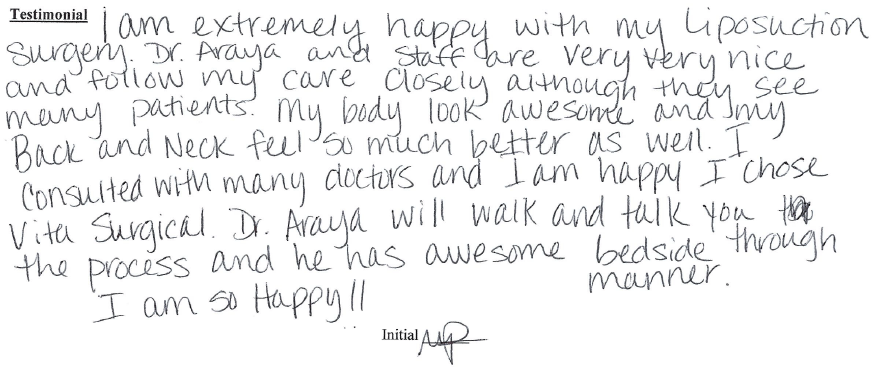 Testimonial I am extremely happy with my Liposuction
surgery. Dr. Araya and staff are very very nice
and follow my care closely although they see
many patients. My body look awesome and my
Back and Neck feel so much better as well. I
Consulted with many doctors and I am happy I chose
Vita Surgical. Dr. Araya will walk and talk you
the process and he has awesome bedside through
manner.
I am so Happy!!
Initial MP